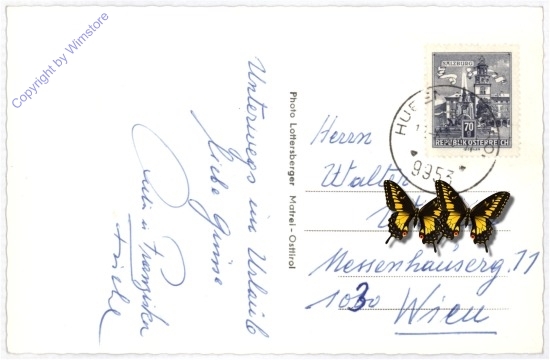 Copyright by Wimstore
Unterwegs im Urlaub
liebe Grüsse
Franziska
Photo Lottersberger Matrei - Osttirol
SALZBURG
70
REPUBLIK ÖSTERREICH
HUB
9953
Herrn
Walter
Messenhauserg. 11
1030 Wien